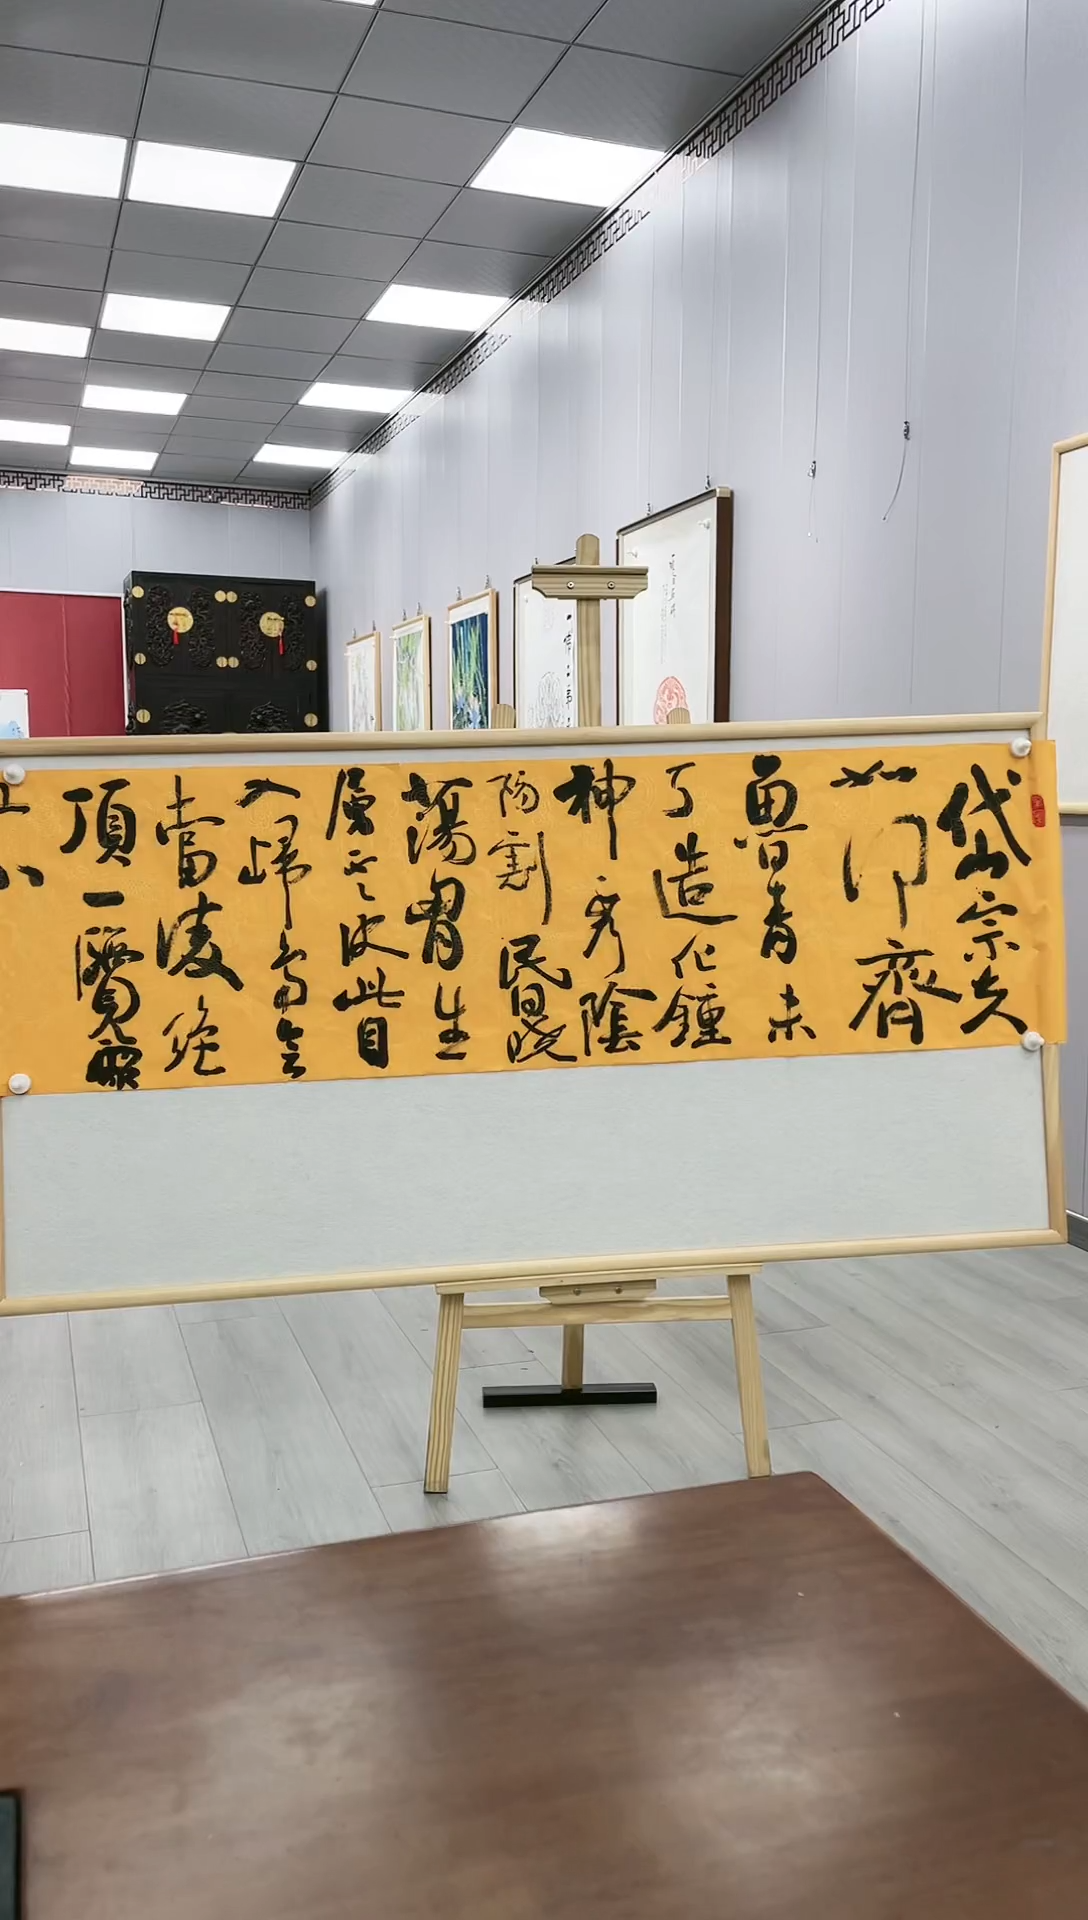 岱宗夫
如何齊
魯青未
了造化鍾
神秀陰
陽割昬曉
蕩胷生
層云決眥
入歸鳥會
當淩絕
頂一覽眾